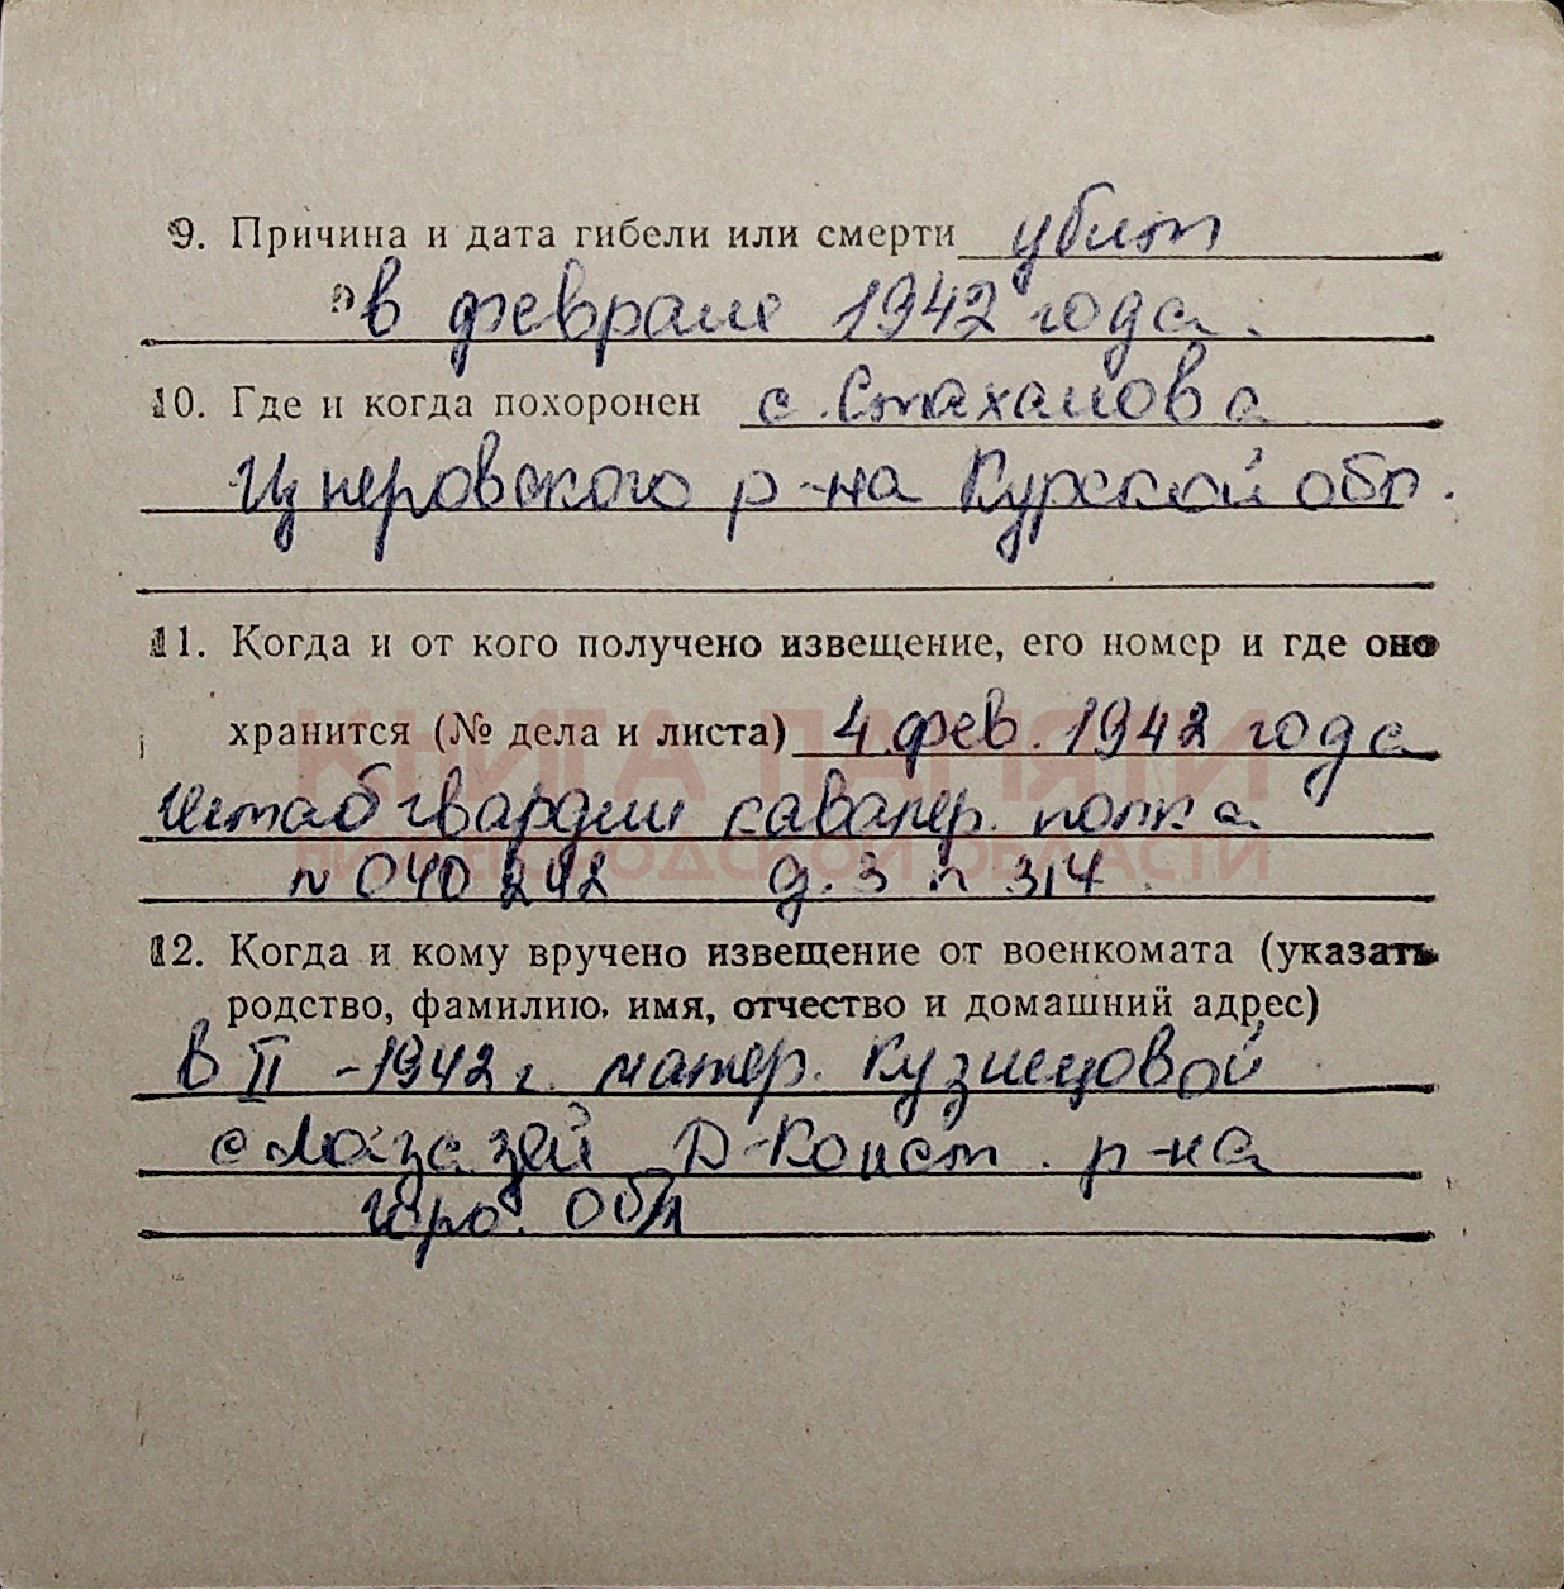 9. Причина и дата гибели или смерти убит
в феврале 1942 года.
10. Где и когда похоронен с. Стаханова
р-на Курской обл.
11. Когда и от кого получено извещение, его номер и где оно
хранится (№ дела и листа) 4 фев. 1942 года
КНИГА ПАМЯТИ
штаб гвардии кавалер. полка
НИЖЕГОРОДСКОЙ ОБЛАСТИ
N 040242 д. 3 л 314
12. Когда и кому вручено извещение от военкомата (указать
родство, фамилию, имя, отчество и домашний адрес)
в II - 1942 г. матер. Кузнецовой
с Д-Конст. р-на
обл